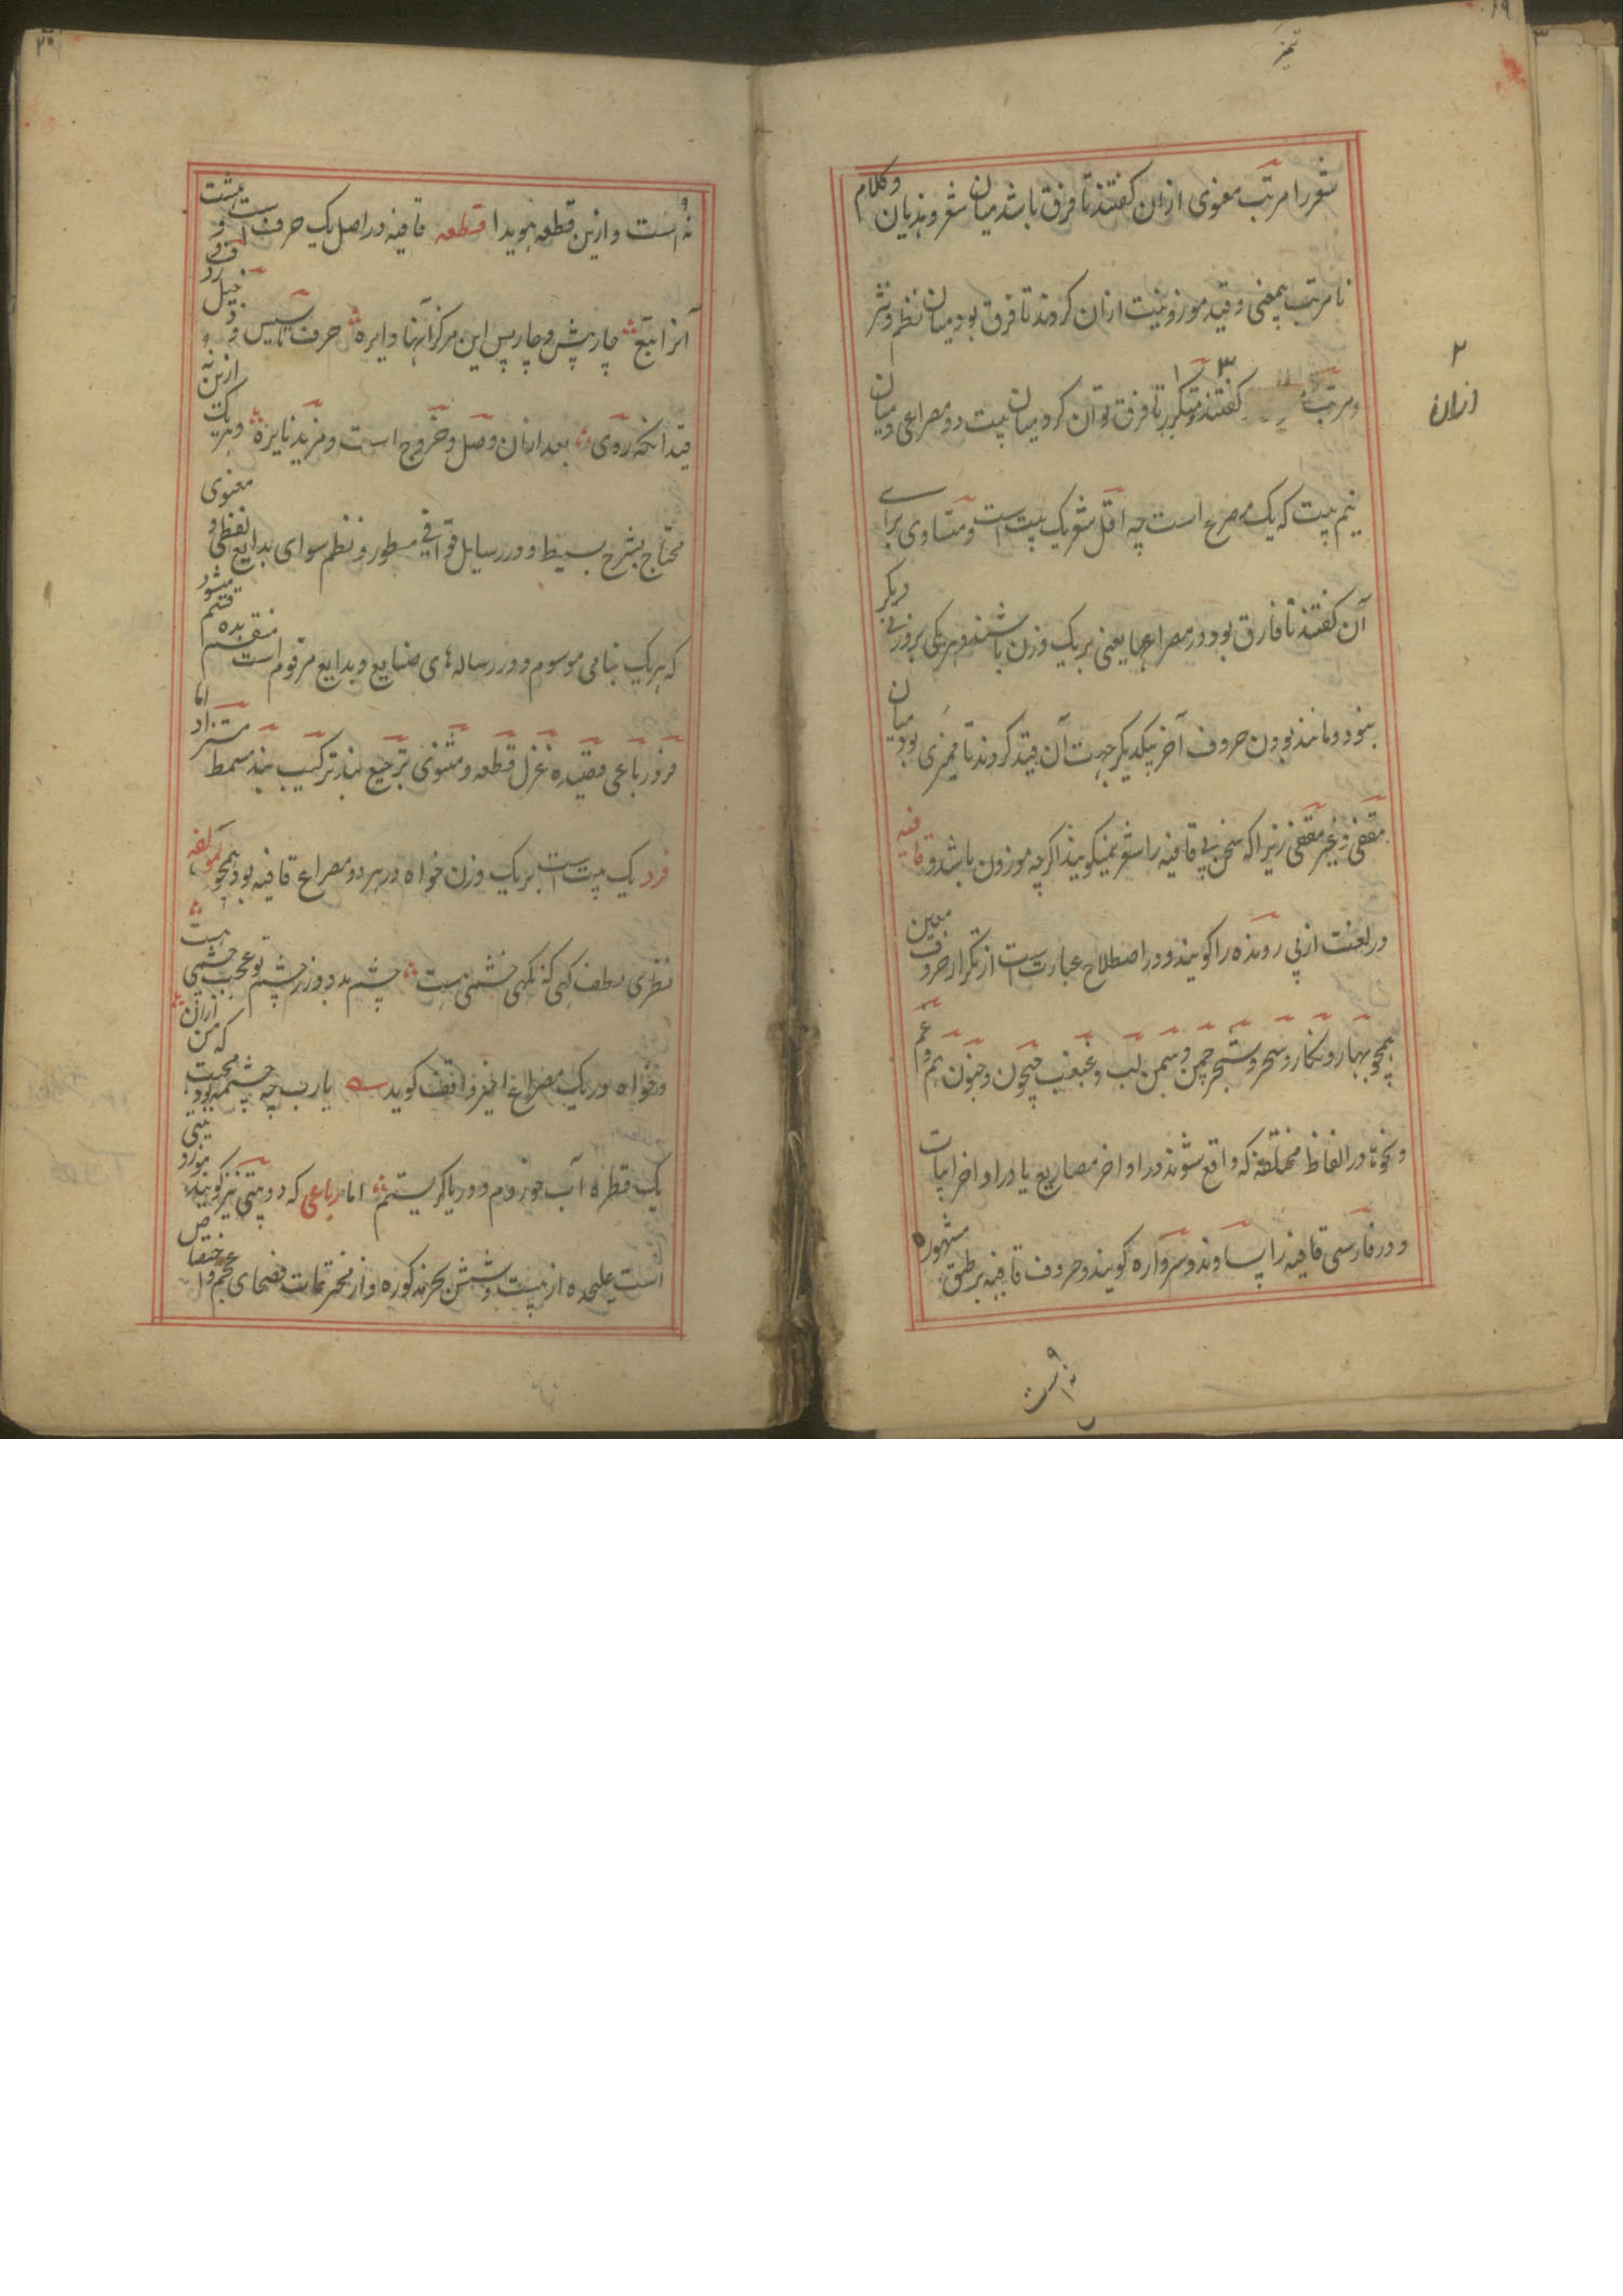 ۱۹
تمیز
شعر را مرتب معنوی ازان کفتند تا فرق باشد میان شعر و هذیان و کلام
نا مرتب بمعنی و قید موزونیت ازان کردند تا فرق بود میان نظم و نثر
و مرتب کفتند و متکرر تا فرق توان کرد میان بیت دو مصراعی و میان
۲
ازان
نیم بیت که یک مصرع است چه اقل شعر یک بیت است و متساوی برای
آن کفتند تا فارق بود در مصراعها یعنی بر یک وزن باشند و هر یکی بر وزنی دیکر
نبود و مانند بودن حروف آخر بیکدیکر جهت آن قید کردند تا ممیزی بود میان
مقفی و غیر مقفی زیرا که سخن بی قافیه را شعر نمیکویند اکرچه موزون باشد و قافیه
در لغت از پی رونده را کویند و در اصطلاح عبارت است از تکرار حروف معین
همچو بهار و نکار و سحر و شجر چمن و سمن لب و غبغب جیحون و جنون نم و غم
و نحوه در الفاظ مختلفه که واقع شوند در اواخر مصاریع یا در اواخر ابیات
و در فارسی قافیه را پساوند و سرواره کویند و حروف قافیه بر طبق مشهوره
نه است
۲۰
نه است و ازین قطعه هویدا قطعه قافیه در اصل یک حرف است و هشت
آنرا تبع چار پیش و چار پس این مرکز آنها دایره حرف تاسیس و دخیل ردف و
قید آنکه روی بعد ازان وصل و خروج است و مزید نایره و هر یک ازین نه
محتاج بشرح بسیط و در رسایل قوافی مسطور و نظم سوای بدایع لفظی و معنوی
که هر یک بنامی موسوم و در رساله های صنایع و بدایع مرقوم است منقسم بده قسم میشود
فرد رباعی قصیده غزل قطعه و مثنوی ترجیع بند ترکیب بند مسمط مستزاد اما
فرد یک بیت است بر یک وزن خواه در هر دو مصراع قافیه بود همچو لمولفه
نظری لطف کهی که نکهی خشمی هست چشم بد دور ز چشم تو عجب چشمی هست
و خواه در یک مصراع اخیر واقف کوید یا رب چه چشمه بود محبت که من ازان
یک قطره آب خوردم و دریا کریستم اما رباعی که دو بیتی نیز کویند
است علیحده از بیست و شش بحر مذکوره و از مخترعات فصحای عجم و اختصاص